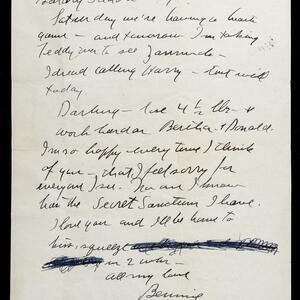 Saturday we're having a beach
game - and tomorrow I'm taking
Teddy over to see
I dread calling Harry - but will
today.
Darling - lose 4 1/2 lbs. +
work hard on Berthe + Donald.
I'm so happy - every time I think
of you - that I feel sorry for
everyone I see. You and I know
has the Secret Sanctum I have.
I love you and I'll be home to
kiss, squeeze
in 2 wks -
all my love
Bennie